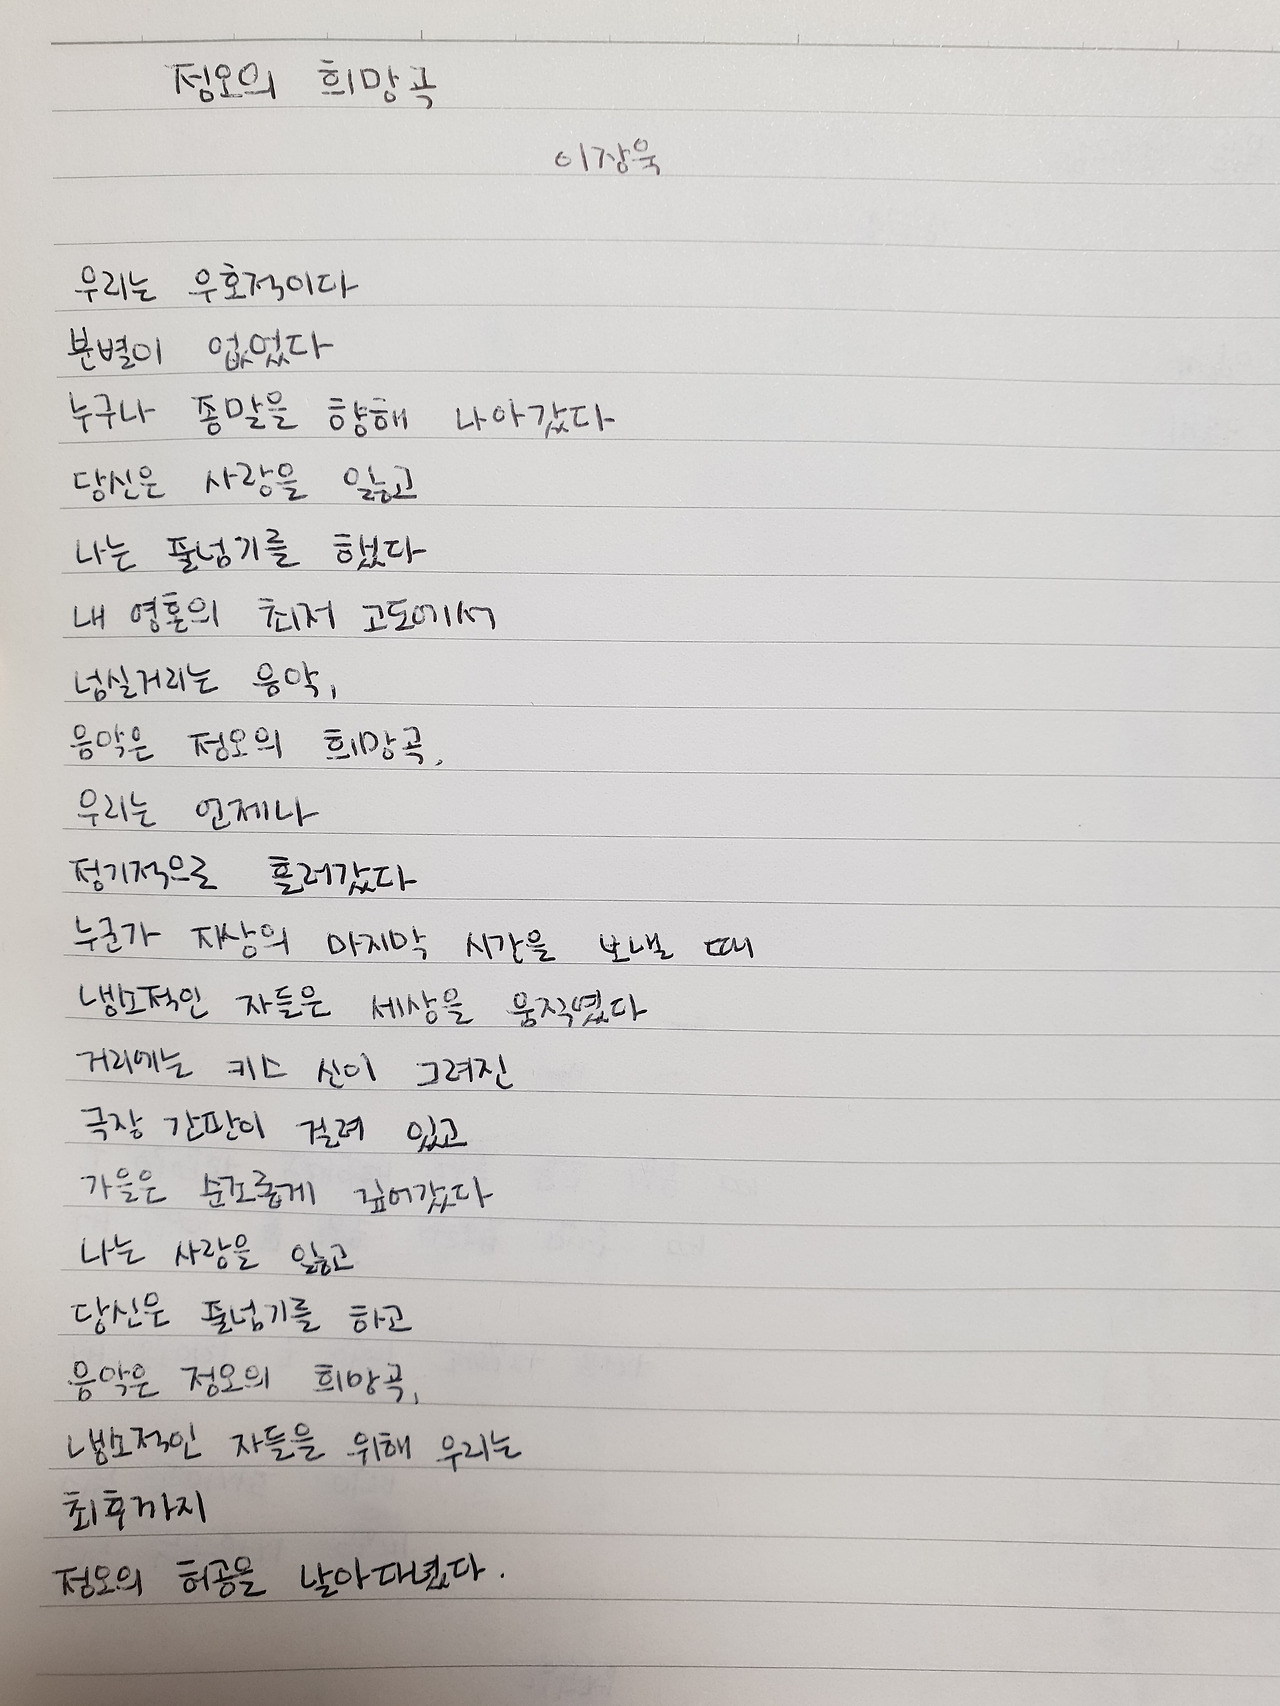 정오의 희망곡
이장욱
우리는 우호적이다
분별이 없었다
누구나 종말을 향해 나아갔다
당신은 사랑을 잃고
나는 줄넘기를 했다
내 영혼의 최저 고도에서
넘실거리는 음악,
음악은 정오의 희망곡,
우리는 언제나
정기적으로 흘러갔다
누군가 지상의 마지막 시간을 보낼 때
냉소적인 자들은 세상을 움직였다
거리에는 키스 신이 그려진
극장 간판이 걸려 있고
가을은 순조롭게 깊어갔다
나는 사랑을 잃고
당신은 줄넘기를 하고
음악은 정오의 희망곡,
냉소적인 자들을 위해 우리는
최후까지
정오의 허공을 날아다녔다.